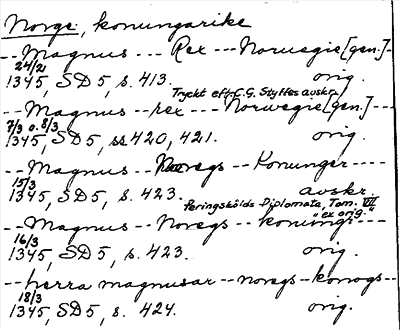 Norge, konungarike
--Magnus --- Rex --- Noruegie [gen.]-
24/21
1345, SD 5, s. 413. orig.
Tryckt eft. C.G. Styffes avskr.
--Magnus --rex --- Norwegie [gen.] ---
7/3 o. 8/3
1345, SD 5, ss 420, 421. orig.
--Magnus -- Noregs -- Konunger ----
15/3
1345, SD 5, s. 423. avskr.
Peringskölds Diplomata, Tom. VII
"ex orig."
--Magnus -- Noregs -- konungr ---
16/3
1345, SD 5, s. 423. orig.
--herra magnusar --noregs--konogs--
18/3
1345, SD 5, s. 424. orig.